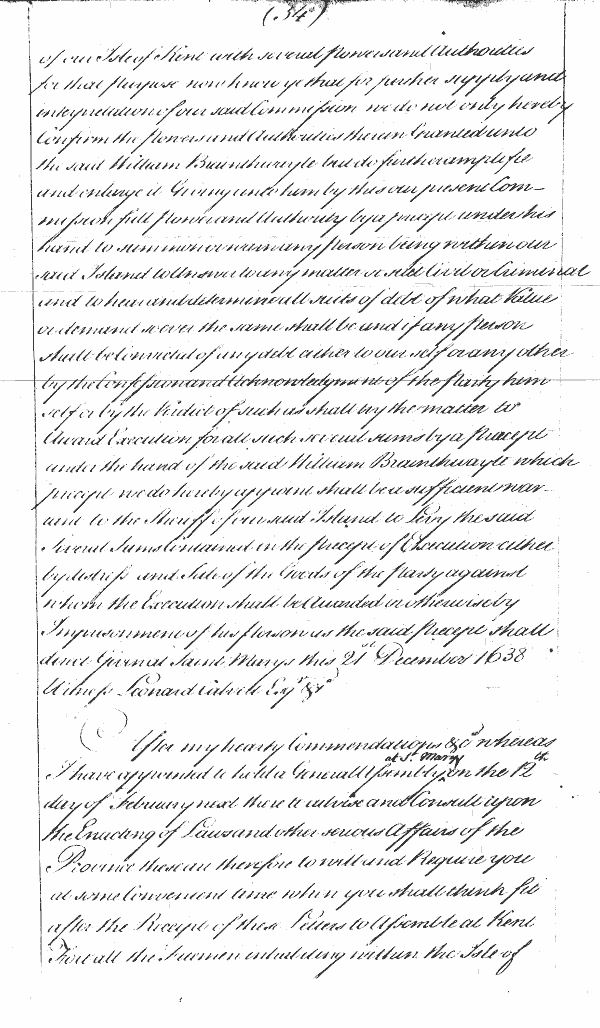 (34)
of our Isle of Kent with several Powers and Authorities
for that purpose now know ye that for further supply and
interpretation of our said Commission we do not only hereby
Confirm the Powers and Authorities therein Granted unto
the said William Braunthwayte but do further amplifie
and enlarge it Giving unto him by this our present Com-
mission full Power and Authority by a precept under his
hand to summon or warn any Person being within our
said Island to Answer to any matter or suit Civil or Criminal
and to hear and determine all suits of debt of what Value
or demand soever the same shall be and if any Person
shall be Convicted of any debt either to our self or any other
by the Confession and Acknowledgment of the Party him
self or by the Verdict of such as shall try the matter to
Award Execution for all such several sums by a Precept
under the hand of the said William Brainthwayte which
precept we do hereby appoint shall be a sufficient war-
ant to the Sheriff of our said Island to Levy the said
Several Sums Contained in the precept of Execution either
by distress and Sale of the Goods of the Party against
whom the Execution shall be Awarded or otherwise by
Imprisonment of his Person as the said Precept shall
direct Given at Saint Marys this 21st December 1638
Witness Leonard Calvert Esqr &ca
After my hearty Commendations &ca whereas
at St. Marys
I have appointed to hold a Generall Assembly on the 12th
day of February next there to advise and Consult upon
the Enacting of Laws and other serious Affairs of the
Province these are therefore to will and Require you
at some Convenient time when you shall think fit
after the Receipt of these Letters to Assemble at Kent
Fort all the Freemen inhabiting within the Isle of